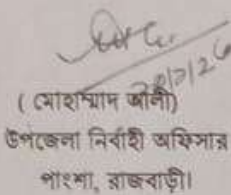 ২০/১/২৬
( মোহাম্মাদ আলী)
উপজেলা নির্বাহী অফিসার
পাংশা, রাজবাড়ী।